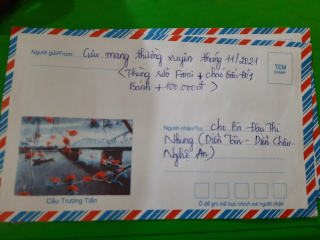 Người gửi/From: Cưu mang thường xuyên tháng 11/2021
(Thùng sữa Fami + cháo Gấu Đỏ
Bánh + 100.000đ)
TEM
STAMP
Người nhận/To: cho Bà Đậu Thị
Nhung (Diễn Tân - Diễn Châu -
Nghệ An)
Cầu Trường Tiền
Ô để ghi mã bưu chính nơi người nhận